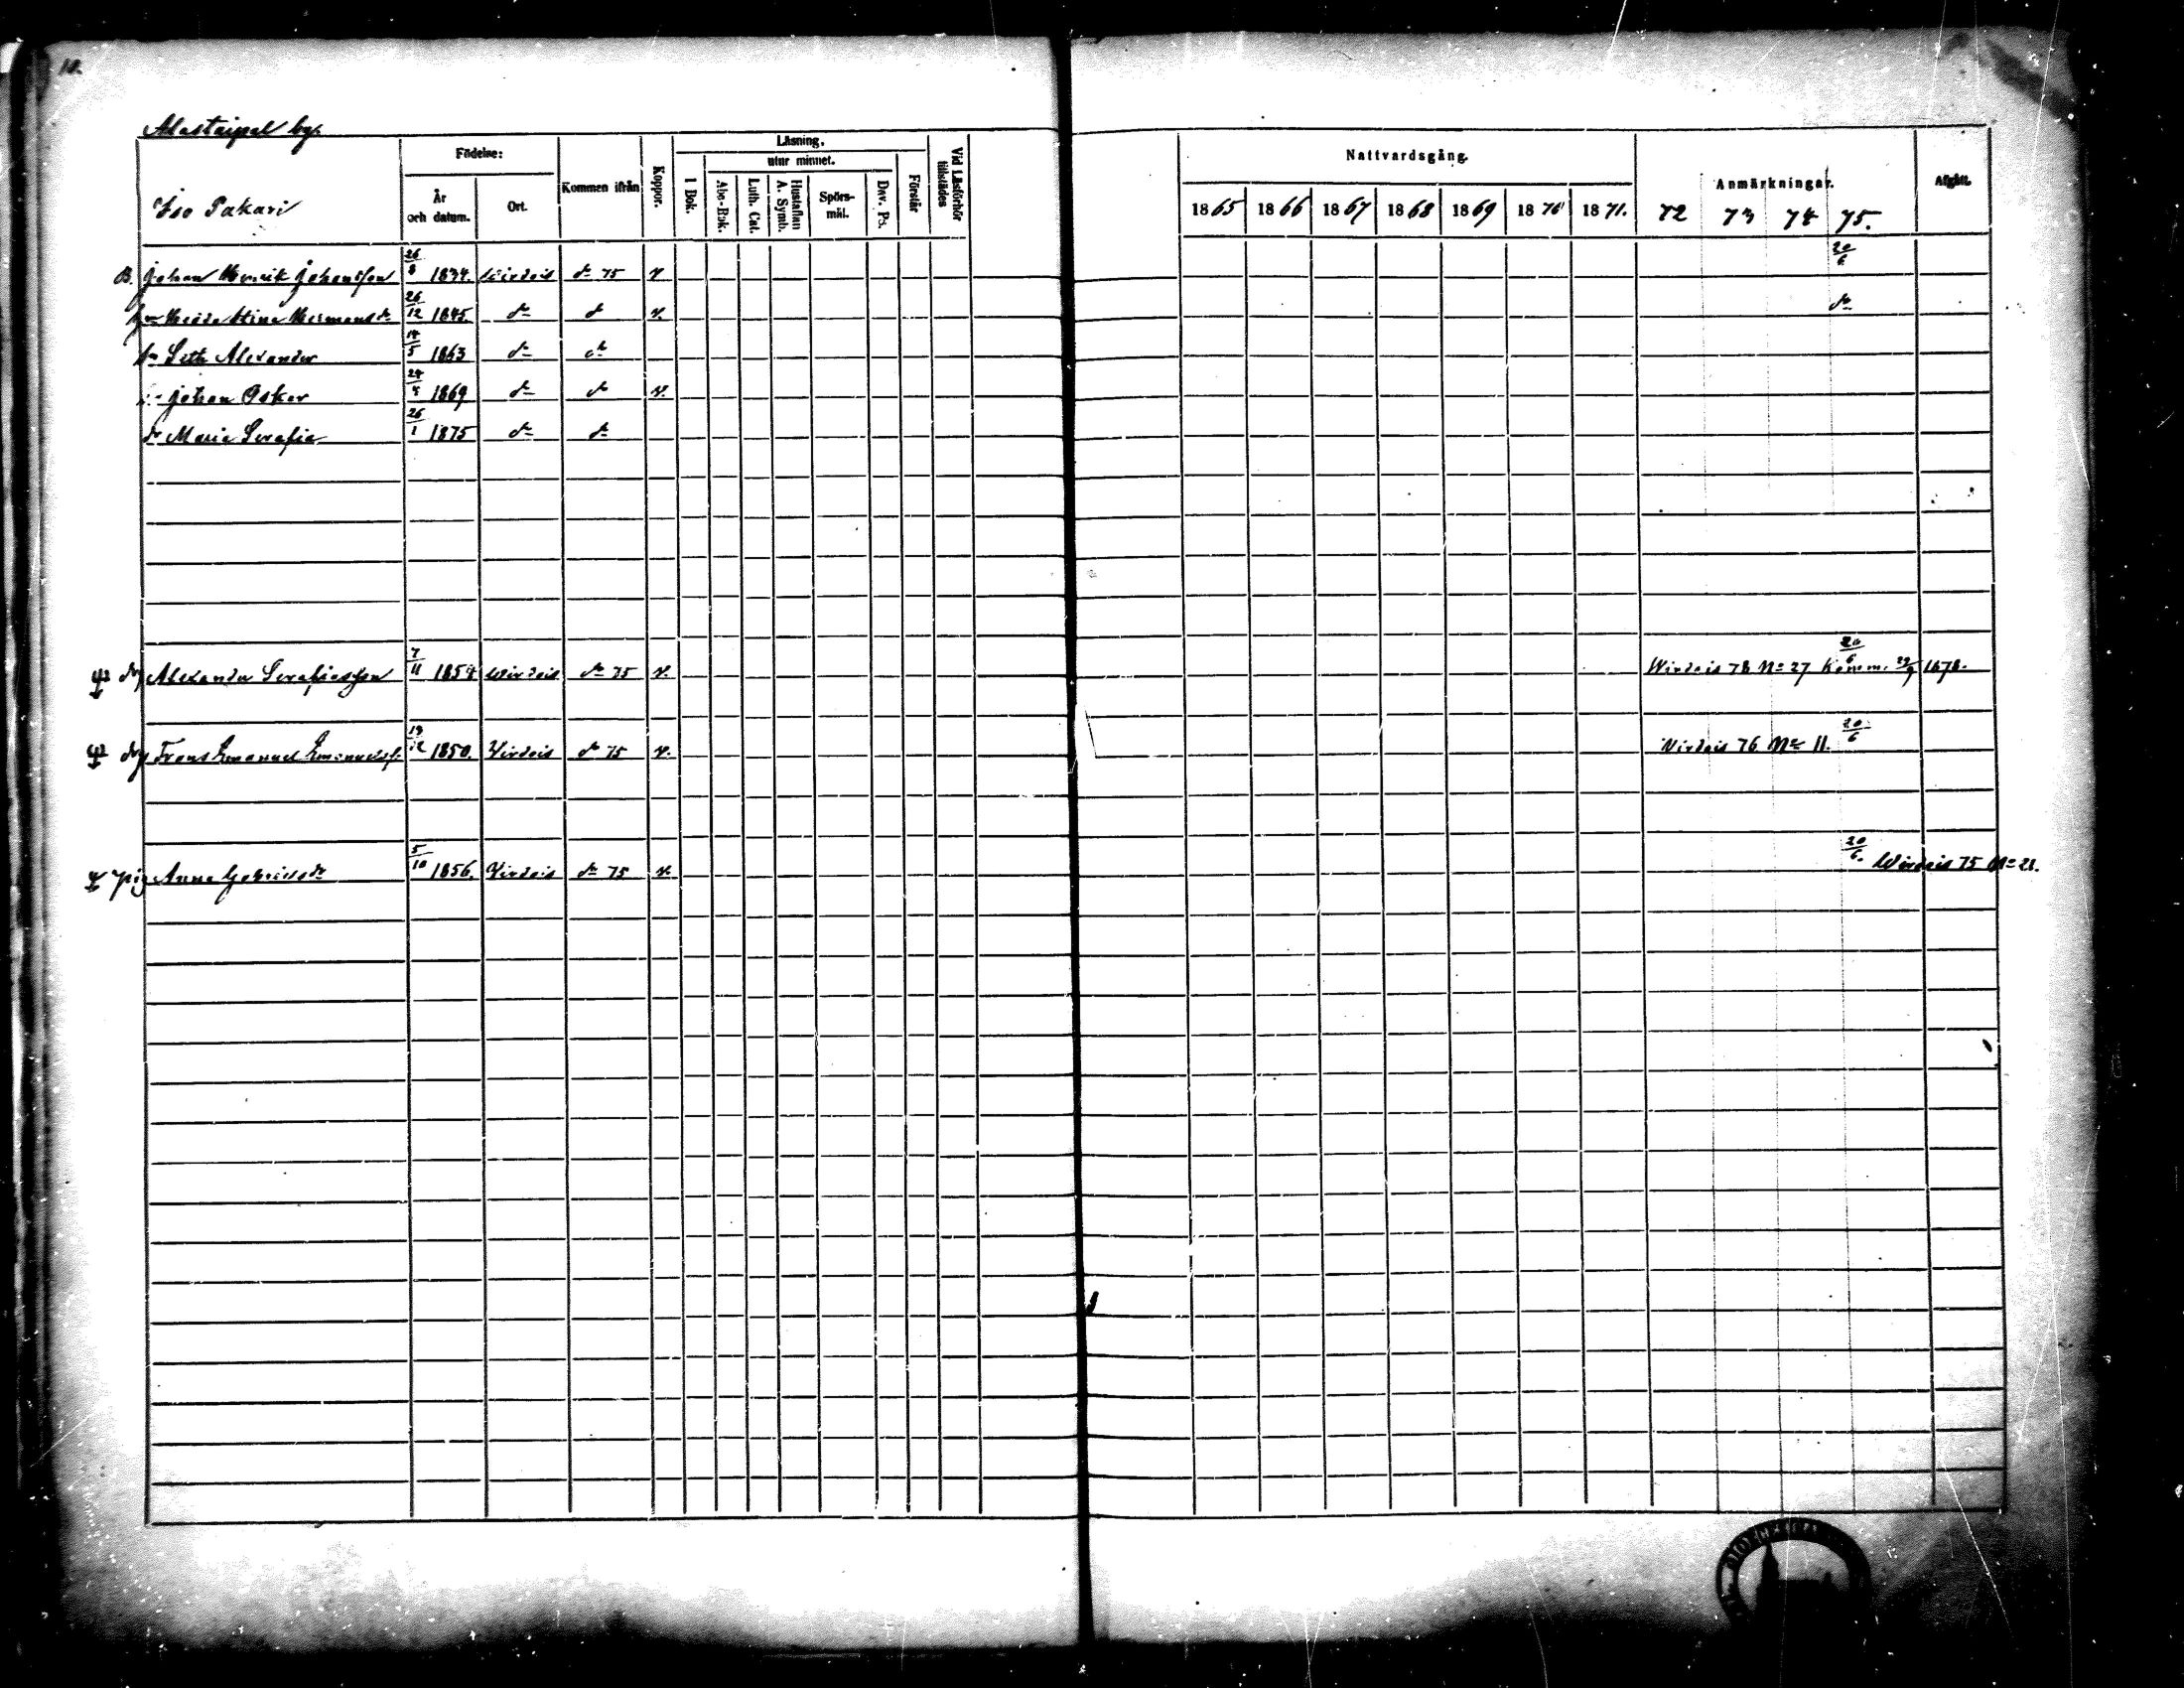 10.
Alastaipal by.
Iso Pakari
Födelse:
År och datum.
Ort.
Kommen ifrån
Koppor.
Läsning,
utur minnet.
I Bok.
Abc-Bok.
Luth. Cat.
Hustaflan A. Symb.
Spörs-mål.
Dav. Ps.
Förstår
Vid Läsförhör tillstädes
Nattvardsgång.
1865 1866 1867 1868 1869 1870 1871.
Anmärkningar.
72 73 74 75.
Afgått.
B. Johan Henrik Johansson 26/8 1834. Wirdois do 75 v. 20/6
Hedda Stina Hermansdr 26/12 1845 do do v. do
Seth Alexander 1863 do do
Johan Oskar 24/5 1869 do do v.
dr Maria Serafia 26/1 1875 do do
drg Alexander Serafiasson 7/11 1854 Wirdois do 75 v. Wirdois 78 No 27 20/6 1878.
drg Frans Emanuel Emanuelss. 19/12 1850. Virdois do 75 v. Virdois 76 No 11. 20/6
pig Anna Gabrielsdr 5/10 1856. Virdois do 75 v. 20/6. Wirdois 75 No 28.